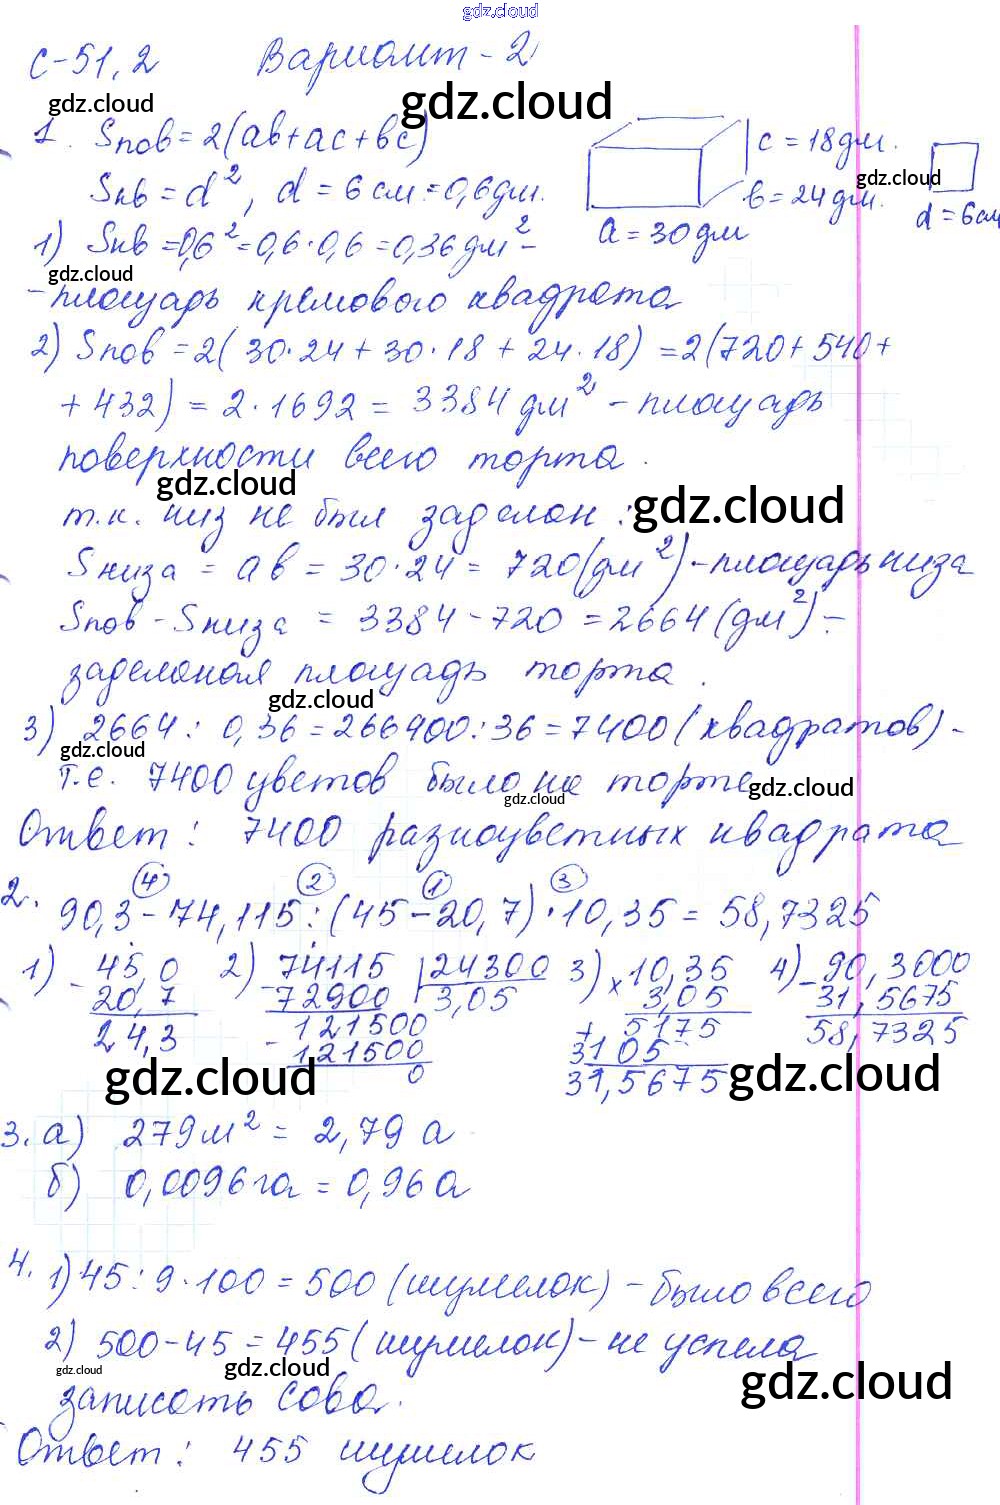 gdz.cloud
С-51,2 Вариант-2
gdz.cloud gdz.cloud
1. Sпов=2(ab+ac+bc)
c=18дм.
Sкв=d², d=6см=0,6дм.
gdz.cloud
b=24дм.
d=6см
a=30дм
1) Sкв=0,6²=0,6·0,6=0,36дм²-
gdz.cloud
-площадь кремового квадрата
2) Sпов=2(30·24+30·18+24·18)=2(720+540+
+432)=2·1692=3384дм²-площадь
поверхности всего торта.
gdz.cloud gdz.cloud
т.к. низ не был заделан:
Sниза=ab=30·24=720(дм²)-площадь низа
Sпов-Sниза=3384-720=2664(дм²)-
заделаная площадь торта.
gdz.cloud
3) 2664:0,36=266400:36=7400(квадратов)-
gdz.cloud
т.е. 7400 цветов было на торте
gdz.cloud gdz.cloud
Ответ: 7400 разноцветных квадрата
4 2 1 3
2. 90,3-74,115:(45-20,7)·10,35=58,7325
1) -45,0 2) -74115 24300 3) ×10,35 4) -90,3000
20,7 72900 3,05 3,05 31,5675
24,3 -121500 + 5175 58,7325
121500 3105
0 31,5675
gdz.cloud gdz.cloud
3. а) 279м²=2,79а
б) 0,0096га=0,96а
4. 1) 45:9·100=500(шумелок)-было всего
2) 500-45=455(шумелок)-не успела
gdz.cloud gdz.cloud gdz.cloud
записать сова.
Ответ: 455 шумелок